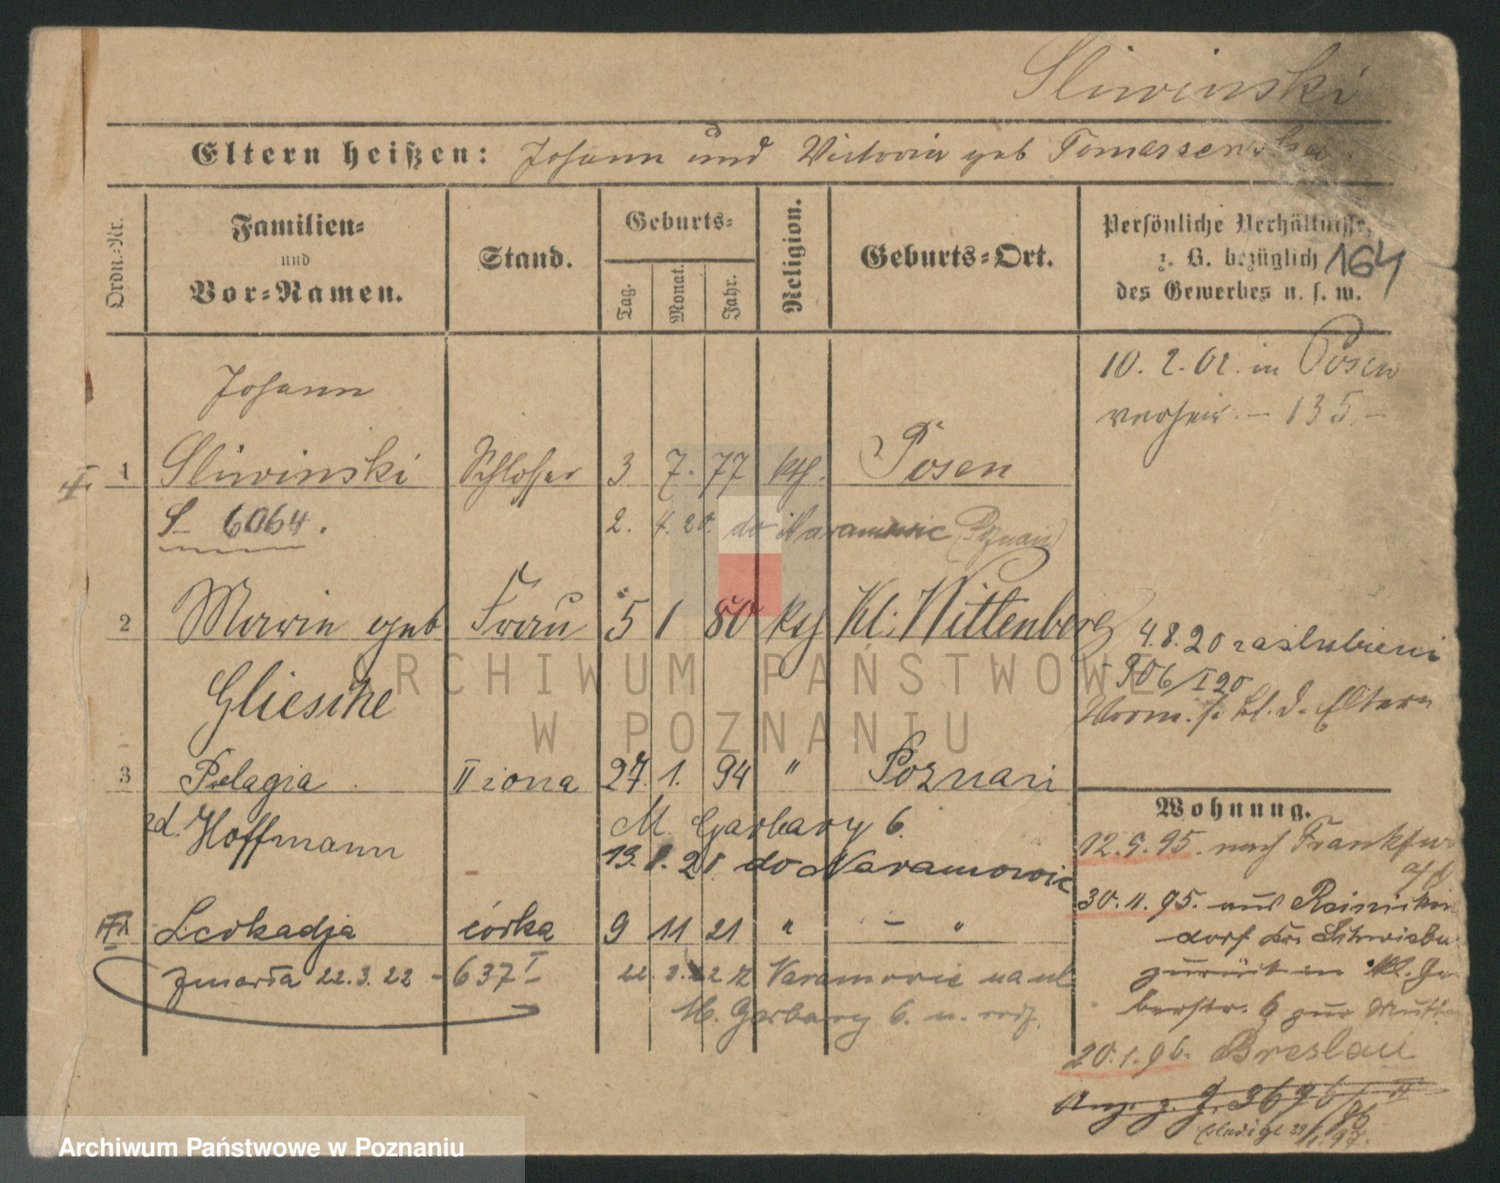 Sliwinski
Eltern heißen: Johann und Victoria geb Tomaszewska.
Ordn.-Nr.
Familien-
und
Vor-Namen.
Stand.
Geburts-
Tag.
Monat.
Jahr.
Religion.
Geburts-Ort.
Persönliche Verhältnisse,
z. B. bezüglich
des Gewerbes u. s. w.
164
Johann
1 Sliwinski Schlosser 3 7. 77 kth. Posen
S 6064.
2. 4. 20. do Naramowic (Poznań)
10. 2. 02. in Posen
verheir. - 135 -
2 Marie geb Frau 5 1 80 kth Kl. Wittenberg
Glieschke
4.8.20 zaślubieni
906/I 20
3 Pelagia II żona 27. 1. 94 " Poznań
zd. Hoffmann
M. Garbary 6.
19. 8. 21 do Naramowic
Leokadja córka 9 11 21 " - "
zmarła 22.3.22 - 637 I
22. 3. 22 z Naramowic na ul
M. Garbary 6.
Wohnung.
12. 9. 95. nach Frankfur
30. 11. 95. aus
dorf Kr.
zurück in Kl. Ger
berstr. 6 zur Mutter
20. 1. 96. Breslau
ARCHIWUM PAŃSTWOWE
W POZNANIU
Archiwum Państwowe w Poznaniu